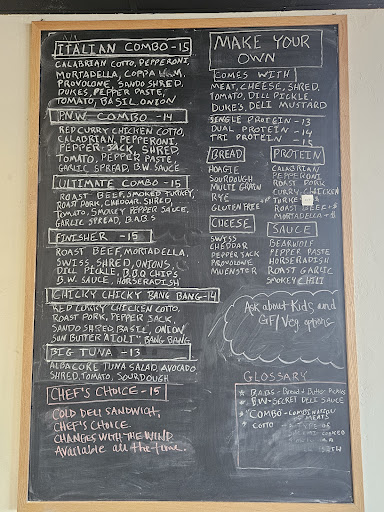 ITALIAN COMBO - 15
CALABRIAN COTTO, PEPPERONI,
MORTADELLA, COPPA HAM,
PROVOLONE, SANDO SHRED,
DUKES, PEPPER PASTE,
TOMATO, BASIL, ONION
PNW COMBO - 14
RED CURRY CHICKEN COTTO,
CALABRIAN, PEPPERONI,
PEPPER JACK, SHRED,
TOMATO, PEPPER PASTE,
GARLIC SPREAD, B.W. SAUCE
ULTIMATE COMBO - 15
ROAST BEEF, SMOKED TURKEY,
ROAST PORK, CHEDDAR, SHRED,
TOMATO, SMOKEY PEPPER SAUCE,
GARLIC SPREAD, BABS
FINISHER - 15
ROAST BEEF, MORTADELLA,
SWISS, SHRED, ONIONS,
DILL PICKLE, BBQ CHIPS
B.W. SAUCE, HORSERADISH
CHICKY CHICKY BANG BANG - 14
RED CURRY CHICKEN COTTO,
ROAST PORK, PEPPER JACK,
SANDO SHRED, BASIL, ONION
SUN BUTTER AIOLI, BANG BANG
BIG TUNA - 13
ALBACORE TUNA SALAD, AVOCADO
SHRED, TOMATO, SOURDOUGH
CHEF'S CHOICE - 15
COLD DELI SANDWICH,
CHEF'S CHOICE.
CHANGES WITH THE WIND
Available all the time.
MAKE YOUR
OWN
COMES WITH
MEAT, CHEESE, SHRED,
TOMATO, DILL PICKLE
DUKE'S, DELI MUSTARD
SINGLE PROTEIN - 13
DUAL PROTEIN - 14
TRI PROTEIN - 15
BREAD
HOAGIE
SOURDOUGH
MULTI GRAIN
RYE
GLUTEN FREE
CHEESE
SWYSS
CHEDDAR
PEPPER JACK
PROVOLONE
MUENSTER
PROTEIN
CALABRIAN
PEPPERONI
ROAST PORK
CURRY CHICKEN
TURKEY
ROAST BEEF
MORTADELLA
SAUCE
BEARWOLF
PEPPER PASTE
HORSERADISH
ROAST GARLIC
SMOKEY CHILI
Ask about Kids and
GF/Veg options
GLOSSARY
BABS - Bread & Butter Pickles
BW - SECRET DELI SAUCE
COMBO - COMBINATION
OF MEATS
COTTO - A TYPE OF